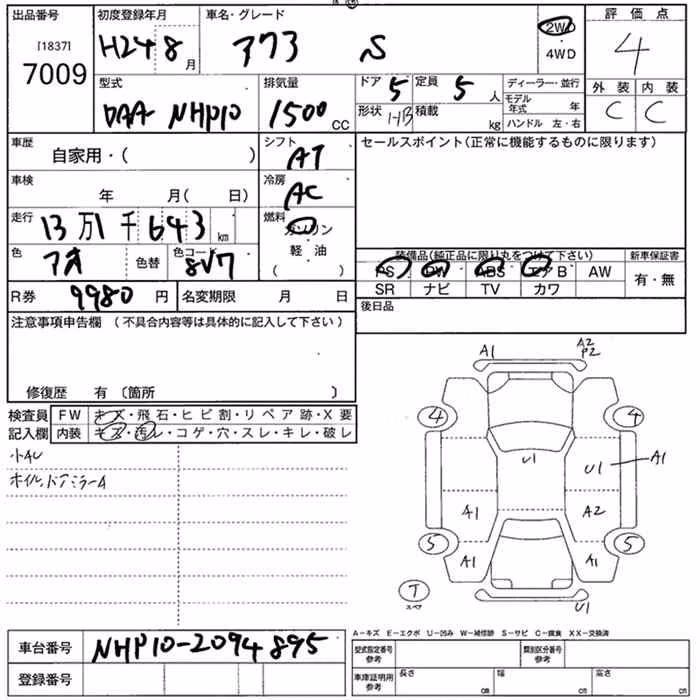 出品番号 初度登録年月 車名・グレード 評価点
[1837]
7009
H24 8月
アクア S
2WD
・
4WD
4
型式 排気量 ドア 5 定員 5人 ディーラー・並行 外装 内装
DAA NHP10 1500 CC 形状 HB 積載 kg モデル年式 年 C C
ハンドル 左・右
車歴 シフト セールスポイント(正常に機能するものに限ります)
自家用・( ) AT
車検 冷房
年 月( 日) AC
走行 燃料
13万1千643km ガソリン
色 色替 色コード 軽・油 装備品(純正品に限り丸をつけて下さい) 新車保証書
アオ 8V7 ( ) PS PW ABS エアB AW 有・無
SR ナビ TV カワ
R券 9980円 名変期限 月 日 後日品
注意事項申告欄(不具合内容等は具体的に記入して下さい)
修復歴 有〔箇所 〕
検査員 FW キズ・飛石・ヒビ割・リペア跡・X要
記入欄 内装 キズ・汚レ・コゲ・穴・スレ・キレ・破レ
小AU
ホイル,ドアミラーA
A1 A2
P2
4 4
U1 U1 A1
A1 A2
5 5
A1 A1
T
スペア
U1
A−キズ E−エクボ U−凹み W−補修跡 S−サビ C−腐食 XX−交換済
車台番号 NHP10-2094895 型式指定番号 参考 類別区分番号 参考
登録番号 車庫証明用 参考 長さ cm 幅 cm 高さ cm